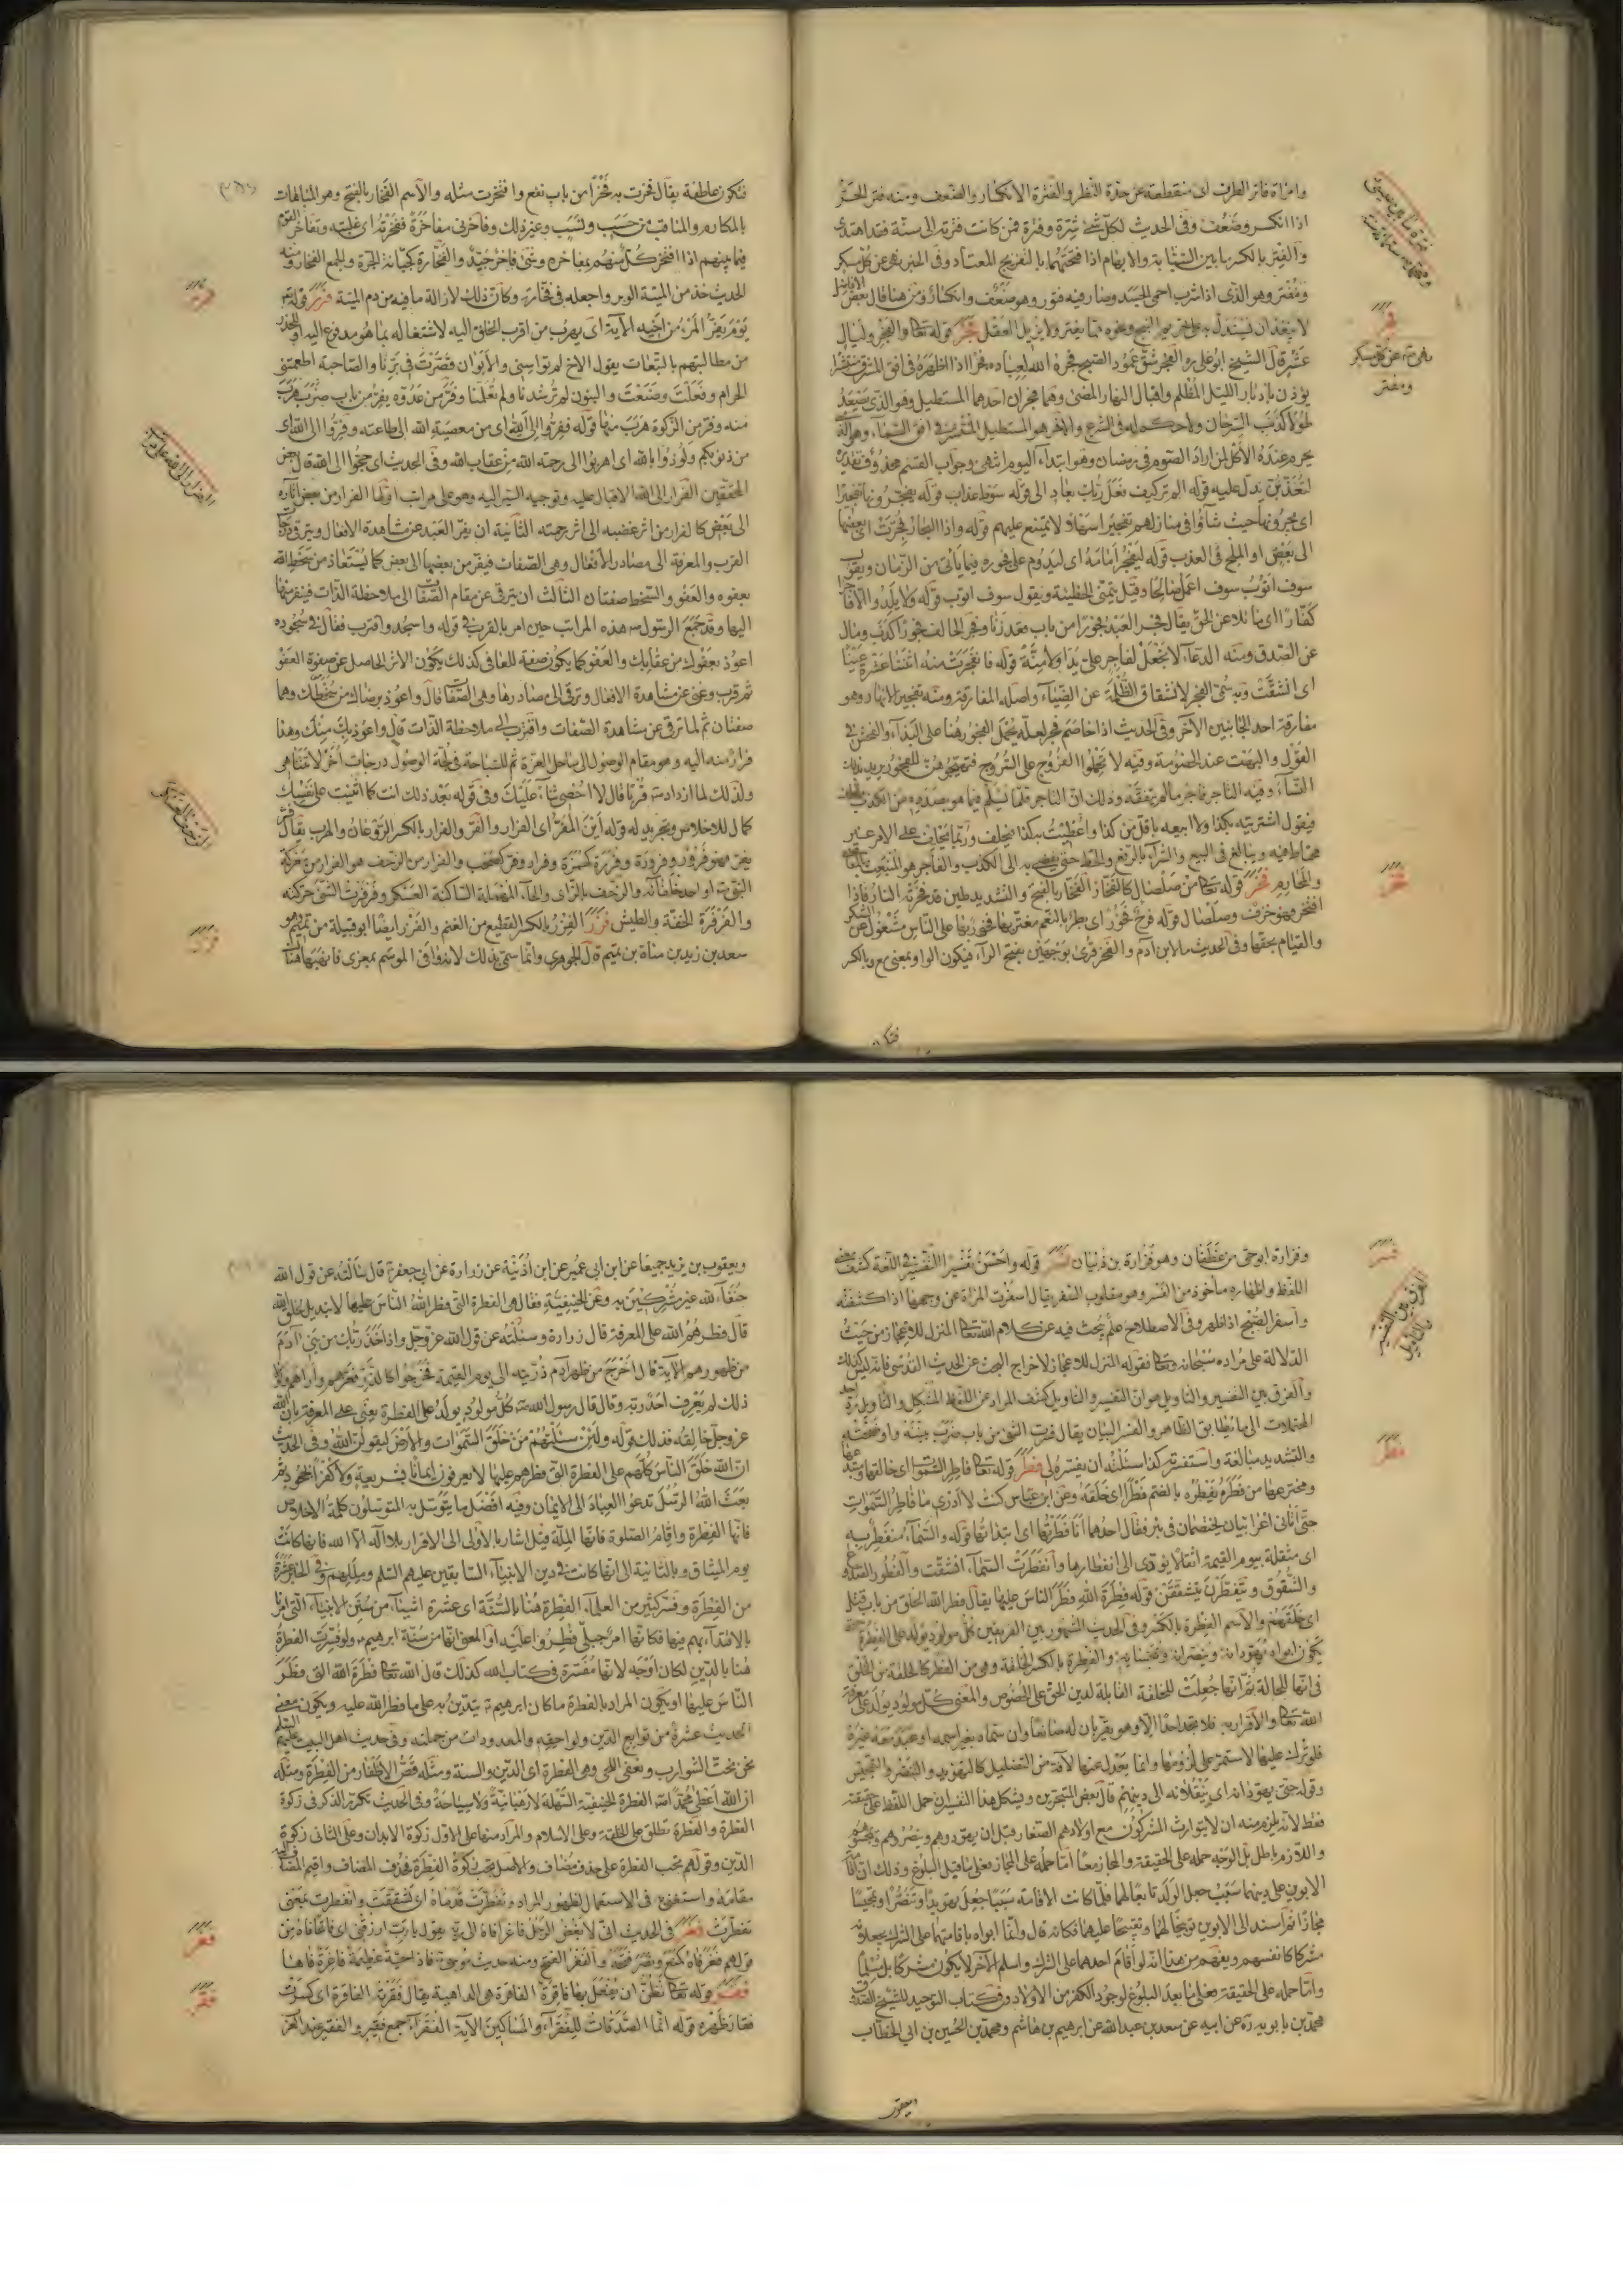 وامراة فاتر الطرف اى منقطعته عن حدة النظر والفترة الانكسار والضعف ومنه فتر الحر
اذا انكسر وضعف وفى الحديث لكل شئ شرة وفترة فمن كانت فترته الى سنة فقد اهتدى
والفتر بالكسر ما بين السبابة والابهام اذا فتحتهما بالتفريج المعتاد وفى الخبر نهى عن كل مسكر
ومفتر وهو الذى اذا شرب احمى الجسد وصار فيه فتور وهو ضعف وانكسار ومن هنا قال بعض الافاضل
لا يبعد ان يستدل به على تحريم البنج ونحوه مما يفتر ولا يزيل العقل فجر قوله تعالى والفجر وليال
عشر قال الشيخ ابو على ره الفجر شق عمود الصبح فجره الله لعباده فجرا اذا اظهره فى افق المشرق
يؤذن بادبار الليل المظلم واقبال النهار المضئ وهما فجران احدهما المستطيل وهو الذى يصعد
طولا كذنب السرحان ولا حكم له فى الشرع والاخر هو المستطير المنتشر فى افق السماء وهو الذى
يحرم عنده الاكل لمن اراد الصوم فى رمضان وهو ابتداء اليوم انتهى وجواب القسم محذوف تقديره
لتعذبن يدل عليه قوله الم تر كيف فعل ربك بعاد الى قوله سوط عذاب قوله يفجرونها تفجيرا
اى يجرونها حيث شاؤا فى منازلهم تفجيرا سهلا لا يمتنع عليهم قوله واذا البحار فجرت اى بعضها
الى بعض او الملح فى العذب قوله ليفجر امامه اى ليدوم على فجوره فيما ياتى من الزمان ويقول
سوف اتوب سوف اعمل صالحا وقيل يتمنى الخطيئة ويقول سوف اتوب قوله ولا يلدوا الا فاجرا
كفارا اى مائلا عن الحق يقال فجر العبد فجورا من باب قعد زنا وفجر الحالف فجورا كذب ومال
عن الصدق ومنه الدعاء لا تجعل لفاجر على يدا ولا منة قوله فانفجرت منه اثنتا عشرة عينا
اى انشقت وبه سمى الفجر لانشقاق الظلمة عن الضياء واصله المفارقة ومنه تفجير الانهار وهو
مفارقة احد الجانبين الآخر وفى الحديث اذا خاصم فجر لعله يحمل الفجور هنا على البذاء والفحش فى
القول والبهت عند الخصومة وفيه لا تحملوا الفروج على السروج فتهيجوهن للفجور يريد بذلك
النساء وفيه التاجر فاجر ما لم يتفقه وذلك ان التاجر قلما يسلم فيما هو بصدده من الكذب
فيقول اشتريته بكذا ولا ابيعه باقل من كذا واعطيت بكذا فيحلف وربما يحلف على الامر غير
محتاط فيه ويبالغ فى البيع والشراء بالرفع والحط حتى يفضى به الى الكذب والفاجر هو المنبعث بالمعاصى
والمحارم فخر قوله تعالى من صلصال كالفخار الفخار بالفتح والتشديد طين قد فخرته النار فاذا
افتخر فهو خزف وصلصال قوله فرح فخور اى بطر بالنعم مغتر بها فخور بها على الناس مشغول عن الشكر
والقيام بحقها وفى الحديث ما لابن آدم والفخر قرئ بوجهين بفتح الراء فيكون الواو بمعنى مع وبالكسر
فتكون
فجر
نهى عن كل مسكر
ومفتر
فخر
فتكون عاطفة يقال فخرت به فخرا من باب نفع وافتخرت مثله والاسم الفخار بالفتح وهو المباهات
بالمكارم والمناقب من حسب ونسب وغير ذلك وفاخرنى مفاخرة ففخرته اى غلبته وتفاخر القوم
فيما بينهم اذا افتخر كل منهم بمفاخره وشئ فاخر جيد والفخارة كجبانة الجرة والجمع الفخار ومنه
الحديث خذ من الميتة الوبر واجعله فى فخارة وكان ذلك لازالة ما فيه من دم الميتة فرر قوله تعالى
يوم يفر المرء من اخيه الآية اى يهرب من اقرب الخلق اليه لاشتغاله بما هو مدفوع اليه او للحذر
من مطالبتهم بالتبعات يقول الاخ لم تواسنى والابوان قصرت فى برنا والصاحبة اطعمتنى
الحرام وفعلت وصنعت والبنون لم ترشدنا ولم تعلمنا وفر من عدوه يفر من باب ضرب هرب
منه وفر من الزكوة هرب منها قوله ففروا الى الله اى من معصية الله الى طاعته وفروا الى الله اى
من ذنوبكم ولوذوا بالله اى اهربوا الى رحمة الله من عقاب الله وفى الحديث اى حجوا الى الله قال بعض
المحققين الفرار الى الله الاقبال عليه وتوجيه السير اليه وهو على مراتب اولها الفرار من بعض آثاره
الى بعض كالفرار من اثر غضبه الى اثر رحمته الثانية ان يفر العبد عن مشاهدة الافعال ويترقى فى درجات
القرب والمعرفة الى مصادر الافعال وهى الصفات فيفر من بعضها الى بعض كما يستعاذ من سخط الله
بعفوه والعفو والسخط صفتان الثالث ان يترقى عن مقام الصفات الى ملاحظة الذات فيفر منها
اليها وقد جمع الرسول ص هذه المراتب حين امر بالقرب فى قوله واسجد واقترب فقال فى سجوده
اعوذ بعفوك من عقابك والعفو كما يكون صفة للعافى كذلك يكون الاثر الحاصل عن صفة العفو
ثم قرب وغنى عن مشاهدة الافعال وترقى الى مصادرها وهى الصفات قال واعوذ برضاك من سخطك وهما
صفتان ثم لما ترقى عن مشاهدة الصفات واقترب الى ملاحظة الذات قال واعوذ بك منك وهذا
فرار منه اليه وهو مقام الوصول الى ساحل العزة ثم للسباحة فى لجة الوصول درجات اخر لا تتناهى
ولذلك لما ازداد ص قربا قال لا احصى ثناء عليك وفى قوله بعد ذلك انت كما اثنيت على نفسك
كمال للاخلاص وتجريد له قوله اين المفر اى الفرار والفر والفرار بالكسر الروغان والهرب يقال فر
يفر فهو فرور وفرورة وفررة كهمزة وفرار وفر كصحب والفرار من الزحف هو الفرار من معركة
النبى ص او احد خلفائه والزحف بالزاى والحاء المهملة الساكنة العسكر وفرفرت الشئ حركته
والفرفرة الخفة والطيش فزر الفزر بالكسر القطيع من الغنم والفزر ايضا ابو قبيلة من تميم وهو
سعد بن زيد بن مناة بن تميم قال الجوهرى وانما سمى بذلك لانه وافى الموسم بمعزى فانهبها هناك
فرر
الفرار من الزحف
فزر
وفزارة ابو حى من غطفان وهو فزارة بن ذبيان فسر قوله واحسن تفسيرا التفسير فى اللغة كشف معنى
اللفظ واظهاره مأخوذ من الفسر وهو مقلوب السفر يقال اسفرت المراة عن وجهها اذا كشفته
واسفر الصبح اذا ظهر وفى الاصطلاح علم يبحث فيه عن كلام الله تعالى المنزل للاعجاز من حيث
الدلالة على مراده سبحانه وتعالى فقوله المنزل للاعجاز لاخراج البحث عن الحديث القدسى فانه ليس كذلك
والفرق بين التفسير والتاويل هو ان التفسير والتاويل كشف المراد عن اللفظ المشكل والتاويل رد احد
المحتملات الى ما يطابق الظاهر والفسر البيان يقال فسرت الشئ من باب ضرب بينته واوضحته
والتشديد مبالغة واستفسرته كذا سئلته ان يفسره لى فطر قوله تعالى فاطر السموات اى خالقها ومبتدعها
ومخترعها من فطره يفطره بالضم فطرا اى خلقه وعن ابن عباس كنت لا ادرى ما فاطر السموات
حتى أتانى اعرابيان يختصمان فى بئر فقال احدهما انا فطرتها اى ابتداتها قوله والسماء منفطر به
اى مثقلة بيوم القيمة اثقالا يؤدى الى انفطارها وانفطرت السماء انشقت والفطور الصدوع
والشقوق ويتفطرن يتشققن قوله فطرة الله فطر الناس عليها يقال فطر الله الخلق من باب قتل
اى خلقهم والاسم الفطرة بالكسر وفى الحديث المشهور بين الفريقين كل مولود يولد على الفطرة حتى
يكون ابواه يهودانه وينصرانه ويمجسانه والفطرة بالكسر الخلقة وهى من الفطر كالخلقة من الخلق
فى انها للحالة ثم انها جعلت للخلقة القابلة لدين الحق على الخصوص والمعنى كل مولود يولد على معرفة
الله تعالى والاقرار به فلا تجد احدا الا وهو يقر بان له صانعا وان سماه بغير اسمه او عبد معه غيره
فلو ترك عليها لاستمر على لزومها وانما يعدل عنها لآفة من التضليل كالتهويد والتنصر والتمجيس
وقوله حتى يهودانه اى ينقلانه الى دينهم قال بعض المتبحرين ويشكل هذا التفسير ان حمل اللفظ على حقيقته
فقط لانه يلزم منه ان لا يتوارث المشركون مع اولادهم الصغار قبل ان يهودوهم وينصروهم ويمجسوهم
واللازم باطل بل الوجه حمله على الحقيقة والمجاز معا اما حمله على المجاز فعلى ما قبل البلوغ وذلك ان اقامة
الابوين على دينهما سبب جعل الولد تابعا لهما فلما كانت الاقامة سببا جعل تهويدا وتنصيرا وتمجيسا
مجازا ثم اسند الى الابوين توبيخا لهما وتقبيحا عليهما فكانه قال وانما ابواه باقامتهما على الشرك يجعلانه
مشركا كانفسهم ويفهم من هذا انه لو اقام احدهما على الشرك واسلم الآخر لا يكون مشركا بل مسلما
واما حمله على الحقيقة فعلى ما بعد البلوغ لوجود الكفر من الاولاد وفى كتاب التوحيد للشيخ الصدوق
محمد بن بابويه ره عن ابيه عن سعد بن عبد الله عن ابرهيم بن هاشم ومحمد بن الحسين بن ابى الخطاب
ويعقوب
فسر
الفرق بين التفسير
والتاويل
فطر
ويعقوب بن يزيد جميعا عن ابن ابى عمير عن ابن اذينة عن زرارة عن ابى جعفر ع قال سألته عن قول الله
حنفاء لله غير مشركين به وعن الحنيفية فقال هى الفطرة التى فطر الله الناس عليها لا تبديل لخلق الله
قال فطرهم الله على المعرفة قال زرارة وسئلته عن قول الله عز وجل واذ اخذ ربك من بنى آدم
من ظهورهم الآية قال اخرج من ظهر آدم ذريته الى يوم القيمة فخرجوا كالذر فعرفهم واراهم ولولا
ذلك لم يعرف احد ربه وقال قال رسول الله ص كل مولود يولد على الفطرة يعنى على المعرفة بان الله
عز وجل خالقه فذلك قوله ولئن سئلتهم من خلق السموات والارض ليقولن الله وفى الحديث
ان الله خلق الناس كلهم على الفطرة التى فطرهم عليها لا يعرفون ايمانا بشريعة ولا كفرا بجحود ثم
بعث الله الرسل تدعوا العباد الى الايمان وفيه افضل ما يتوسل به المتوسلون كلمة الاخلاص
فانها الفطرة واقام الصلوة فانها الملة قيل اشار بالاولى الى الاقرار بلا اله الا الله فانها كانت
يوم الميثاق وبالثانية الى انها كانت فى دين الانبياء السابقين عليهم السلم ومللهم وفى الخبر عشرة
من الفطرة وفسر كثير من العلماء الفطرة هنا بالسنة اى عشرة اشياء من سنن الانبياء التى امرنا
بالاقتداء بهم فيها فكانها امر جبلى فطروا عليه او المعنى انها من سنة ابرهيم ع ولو فسرت الفطرة
هنا بالدين لكان اوجه لانها مفسرة فى كتاب الله كذلك قال الله تعالى فطرة الله التى فطر
الناس عليها او يكون المراد بالفطرة ما كان ابرهيم ع يتدين به على ما فطر الله عليه ويكون معنى
الحديث عشرة من توابع الدين ولواحقه والمعدودات من جملته وفى حديث اهل البيت عليهم السلم
نحن نحف الشوارب ونعفى اللحى وهى الفطرة اى الدين والسنة ومثله قص الاظفار من الفطرة ومثله
ان الله اعطى محمدا ص الفطرة الحنيفية السهلة لا رهبانية ولا سياحة وفى الحديث تكرر الذكر فى زكوة
الفطرة والفطرة تطلق على الخلقة وعلى الاسلام والمراد منها على الاول زكوة الابدان وعلى الثانى زكوة
الدين وقولهم تجب الفطرة على حذف مضاف والاصل تجب زكوة الفطرة فحذف المضاف واقيم المضاف اليه
مقامه واستغنى به فى الاستعمال لظهور المراد وتفطرت قدماه اى تشققت وانفطرت بمعنى
تفطرت فغر فى الحديث انى لابغض الرجل فاغرا فاه الى ربه يقول يا رب ارزقنى اى فاتحا فاه من
قولهم فغر فاه كمنع ونصر فتحه والفغر الفتح ومنه حديث موسى فاذا حية عظيمة فاغرة فاها
فقر قوله تعالى تظن ان يفعل بها فاقرة الفاقرة هى الداهية يقال فقرته الفاقرة اى كسرت
فقار ظهره قوله انما الصدقات للفقراء والمساكين الآية الفقراء جمع فقير والفقير عند العرب
فغر
فقر